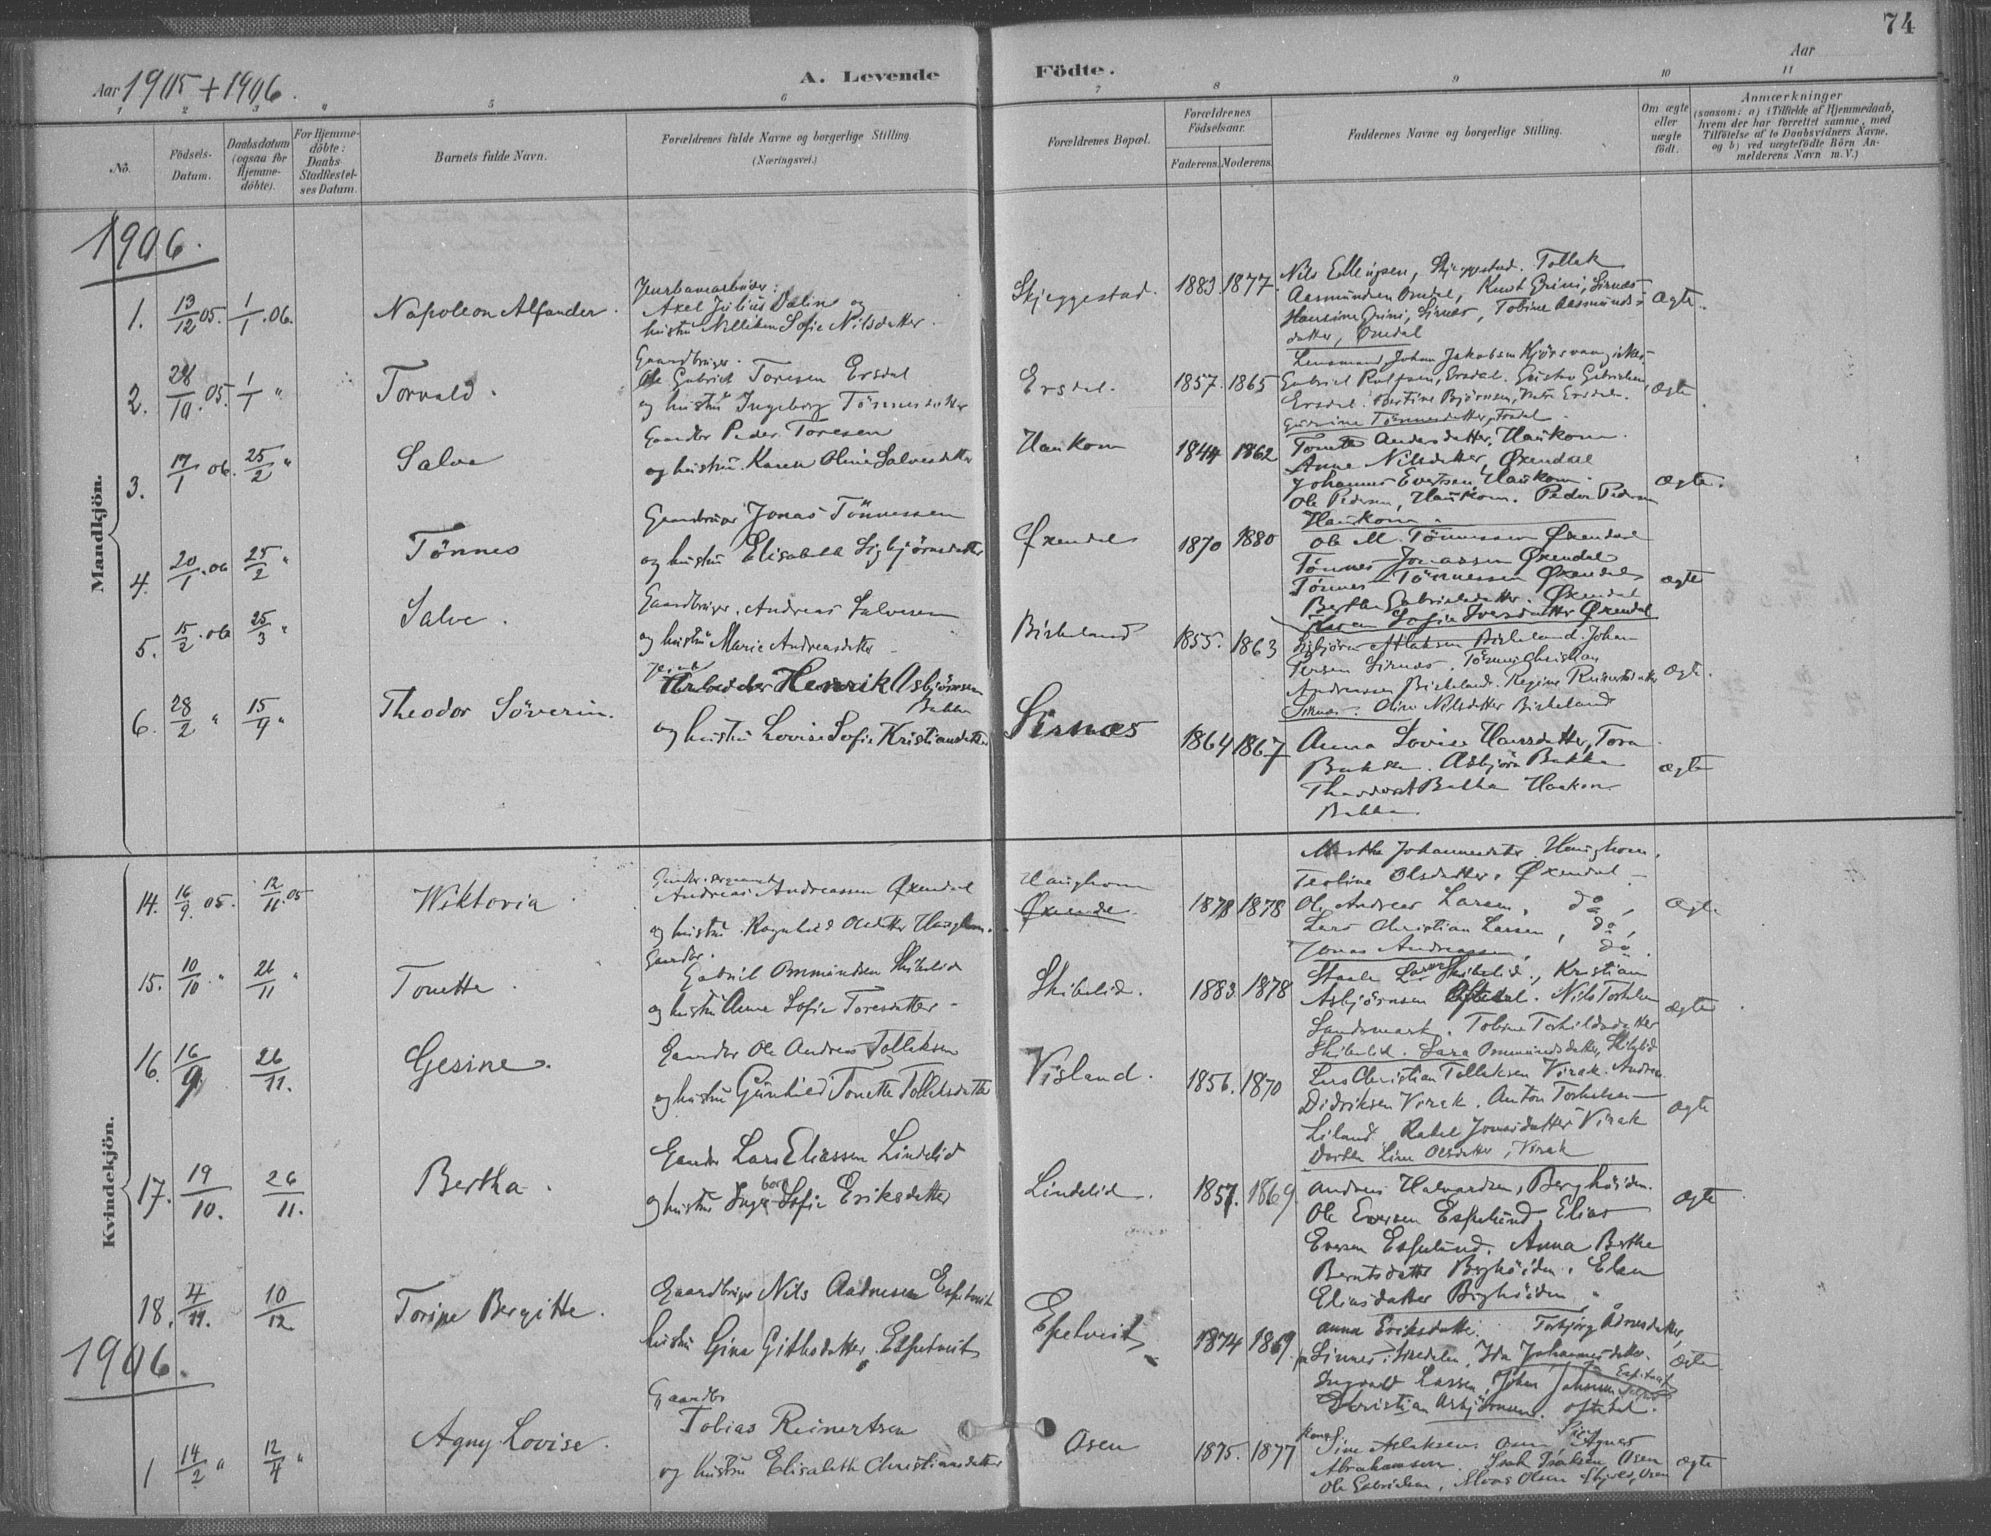 74
Aar 1905 + 1906.
A. Levende Födte.
Aar
1 2 3 4 5 6 7 8 9 10 11
No.
Födsels-Datum.
Daabsdatum (ogsaa for Hjemme-döbte).
For Hjemme-döbte: Daabs Stadfæstel-ses Datum.
Barnets fulde Navn.
Forældrenes fulde Navne og borgerlige Stilling.
(Næringsvei.)
Forældrenes Bopæl.
Forældrenes Födselsaar.
Faderens. Moderens.
Faddernes Navne og borgerlige Stilling.
Om ægte eller uægte födt.
Anmærkninger
(saasom: a) i Tilfælde af Hjemmedaab, hvem der har forrettet samme, med Tilföielse af to Daabsvidners Navne. og b) ved uægtefödte Börn An-melderens Navn m. V.)
Mandkjön.
1906.
1. 13/12 05. 1/1 .06. Napoleon Alfander.
Axel Julius Dalin og
hustru Nilliken Sofie Nilsdatter.
Skjeggestad. 1883 1877.
Nils Ellingsen, Skjeggestad. Tollak
Aasmundsen Omdal, Knut Grini, Sirnæs
Hansine Grini, Sirnæs, Tobine Aasmunds-
datter, Omdal
ægte.
2. 28/10 .05. 1/1 " Torvald.
Gaardbruger.
Ole Gabriel Toresen Ersdal
og hustru Ingeborg Tönnesdatter
Ersdal. 1857. 1865
Lensmand Johan Jakobsen
Ersdal. Bertine Björnsen,
ægte
3. 17/1 06. 25/2 " Salve
Gaardbr Peder Toresen
og hustru Karen Oline Salvesdatter
Haukom 1844 1862
Tonette Andersdatter, Haukom.
Anne Nilsdatter, Øxendal
Johannes Evertsen, Haukom.
Ole Pedersen, Haukom. Peder Pedersen
Haukom.
ægte.
4. 20/1 .06 25/2 " Tönnes
Gaardbruger Jonas Tönnessen
og hustru Elisabeth Sigbjörnsdatter
Øxendal 1870 1880
Ole M. Tönnessen Øxendal
Tönnes Jonassen Øxendal
Tönnes Tönnessen Øxendal
Berthe Gabrielsdatter. Øxendal
Karen Sofie Iversdatter Øxendal
ægte
5. 15/2 .06 25/3 " Salve.
Gaardbruger. Andreas Salvesen
og hustru Marie Andreasdatter
Birkeland 1855. 1863
Sigbjörn Atlaksen Birkeland. Johan
Persen Sirnæs. Tönnes Christian
Andreassen Birkeland. Regine Reinertsdatter
Sirnæs. Oline Nilsdatter Birkeland
ægte.
6. 28/2 " 15/4 " Theodor Söverin.
Arbeider Henrik Asbjörnsen
Bakka
og hustru Lovise Sofie Kristiansdatter
Sirnæs 1864 1867
Anna Lovise Hansdatter, Tora
Bakka. Asbjörn Bakka
Bakka Haakon
Bakka.
ægte
Kvindekjön.
14. 16/9 .05. 12/11 .05 Wiktoria
Andreas Andreassen Øxendal
og hustru Ragnhild Olsdatter Haughom.
Haughom
Øxendal. 1878 1878
Marthe Johannesdatter Haughom.
Teoline Olsdatter. Øxendal
Ole Andreas Larsen, do,
Lars Christian Larsen, do,
Jonas Andreassen, do.
ægte
15. 10/10 " 26/11 " Tonette.
Gaardbr.
Gabriel Ommundsen Skibelid
og hustru Anne Sofie Toresdatter
Skibelid. 1883. 1878
Staale Larsen Skibelid, Kristian
Asbjörnsen Oftedal. Nils Torkelsen
Landsmark. Tobine Torkildsdatter
Skibelid. Sara Ommundsdatter, Skibelid
ægte
16. 16/9 26/11. Gesine.
Gaardbr Ole Andreas Tollaksen
og hustru Gunhild Tonette Tollaksdatter
Visland. 1856. 1870
Lars Christian Tollaksen Virak. Andreas
Didriksen Virak. Anton Torkelsen
Liland. Rakel Jonasdatter Virak
Dorthea Line Olsdatter, Virak
ægte
17. 19/10. 26/11. Bertha.
Gaardbr Lars Eliassen Lindelid
og hustru Ingeborg Sofie Eriksdatter
Lindelid. 1857. 1869.
Andreas Halvardsen, Berghöiden.
Ole Eversen Espelund, Elias
Eversen Espelund. Anna Berthe
Berntsdatter Berghöiden. Elen
Eliasdatter Berghöiden.
ægte
18. 4/11. 10/12 Torine Bergitte.
Gaardbruger Nils Aadnesen Espetveit
hustru Gina Githsdatter Espetveit
Espetveit 1874 1869.
Anna Eriksdatter. Torbjörg Ådnesdatter,
Sinnes i Siredalen, Ida Johannesdatter.
Ingvald Larsen, Johan Johnsen Espetveit
Christian Asbjörnsen. Oftedal.
ægte
1906.
1 14/2 " 12/4 " Agny Lovise.
Gaardbr
Tobias Reinertsen
og hustru Elisabeth Christiansdatter
Osen 1875. 1877
Sine Aslaksen Osen Agnes
Abrahamsen. Isak Isaksen Osen
Ole Gabrielsen, Olsen Osen
ægte